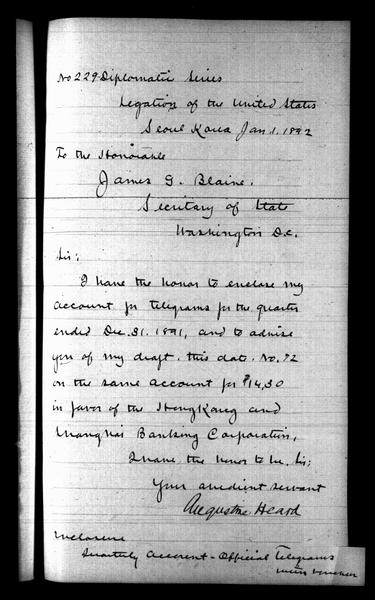 No 229 Diplomatic Series
Legation of the United States
Seoul Korea Jan. 1. 1892
To the Honorable
James G. Blaine.
Secretary of State
Washington D.C.
Sir;
I have the honor to enclose my
account for Telegrams for the quarter
ended Dec. 31. 1891, and to advise
you of my draft, this date, No. 72
on the same account for $14,30
in favor of the HongKong and
Shanghai Banking Corporation,
I have the honor to be, Sir;
Your obedient servant
Augustine Heard
Inclosure
Quarterly Account - Official Telegrams
with voucher